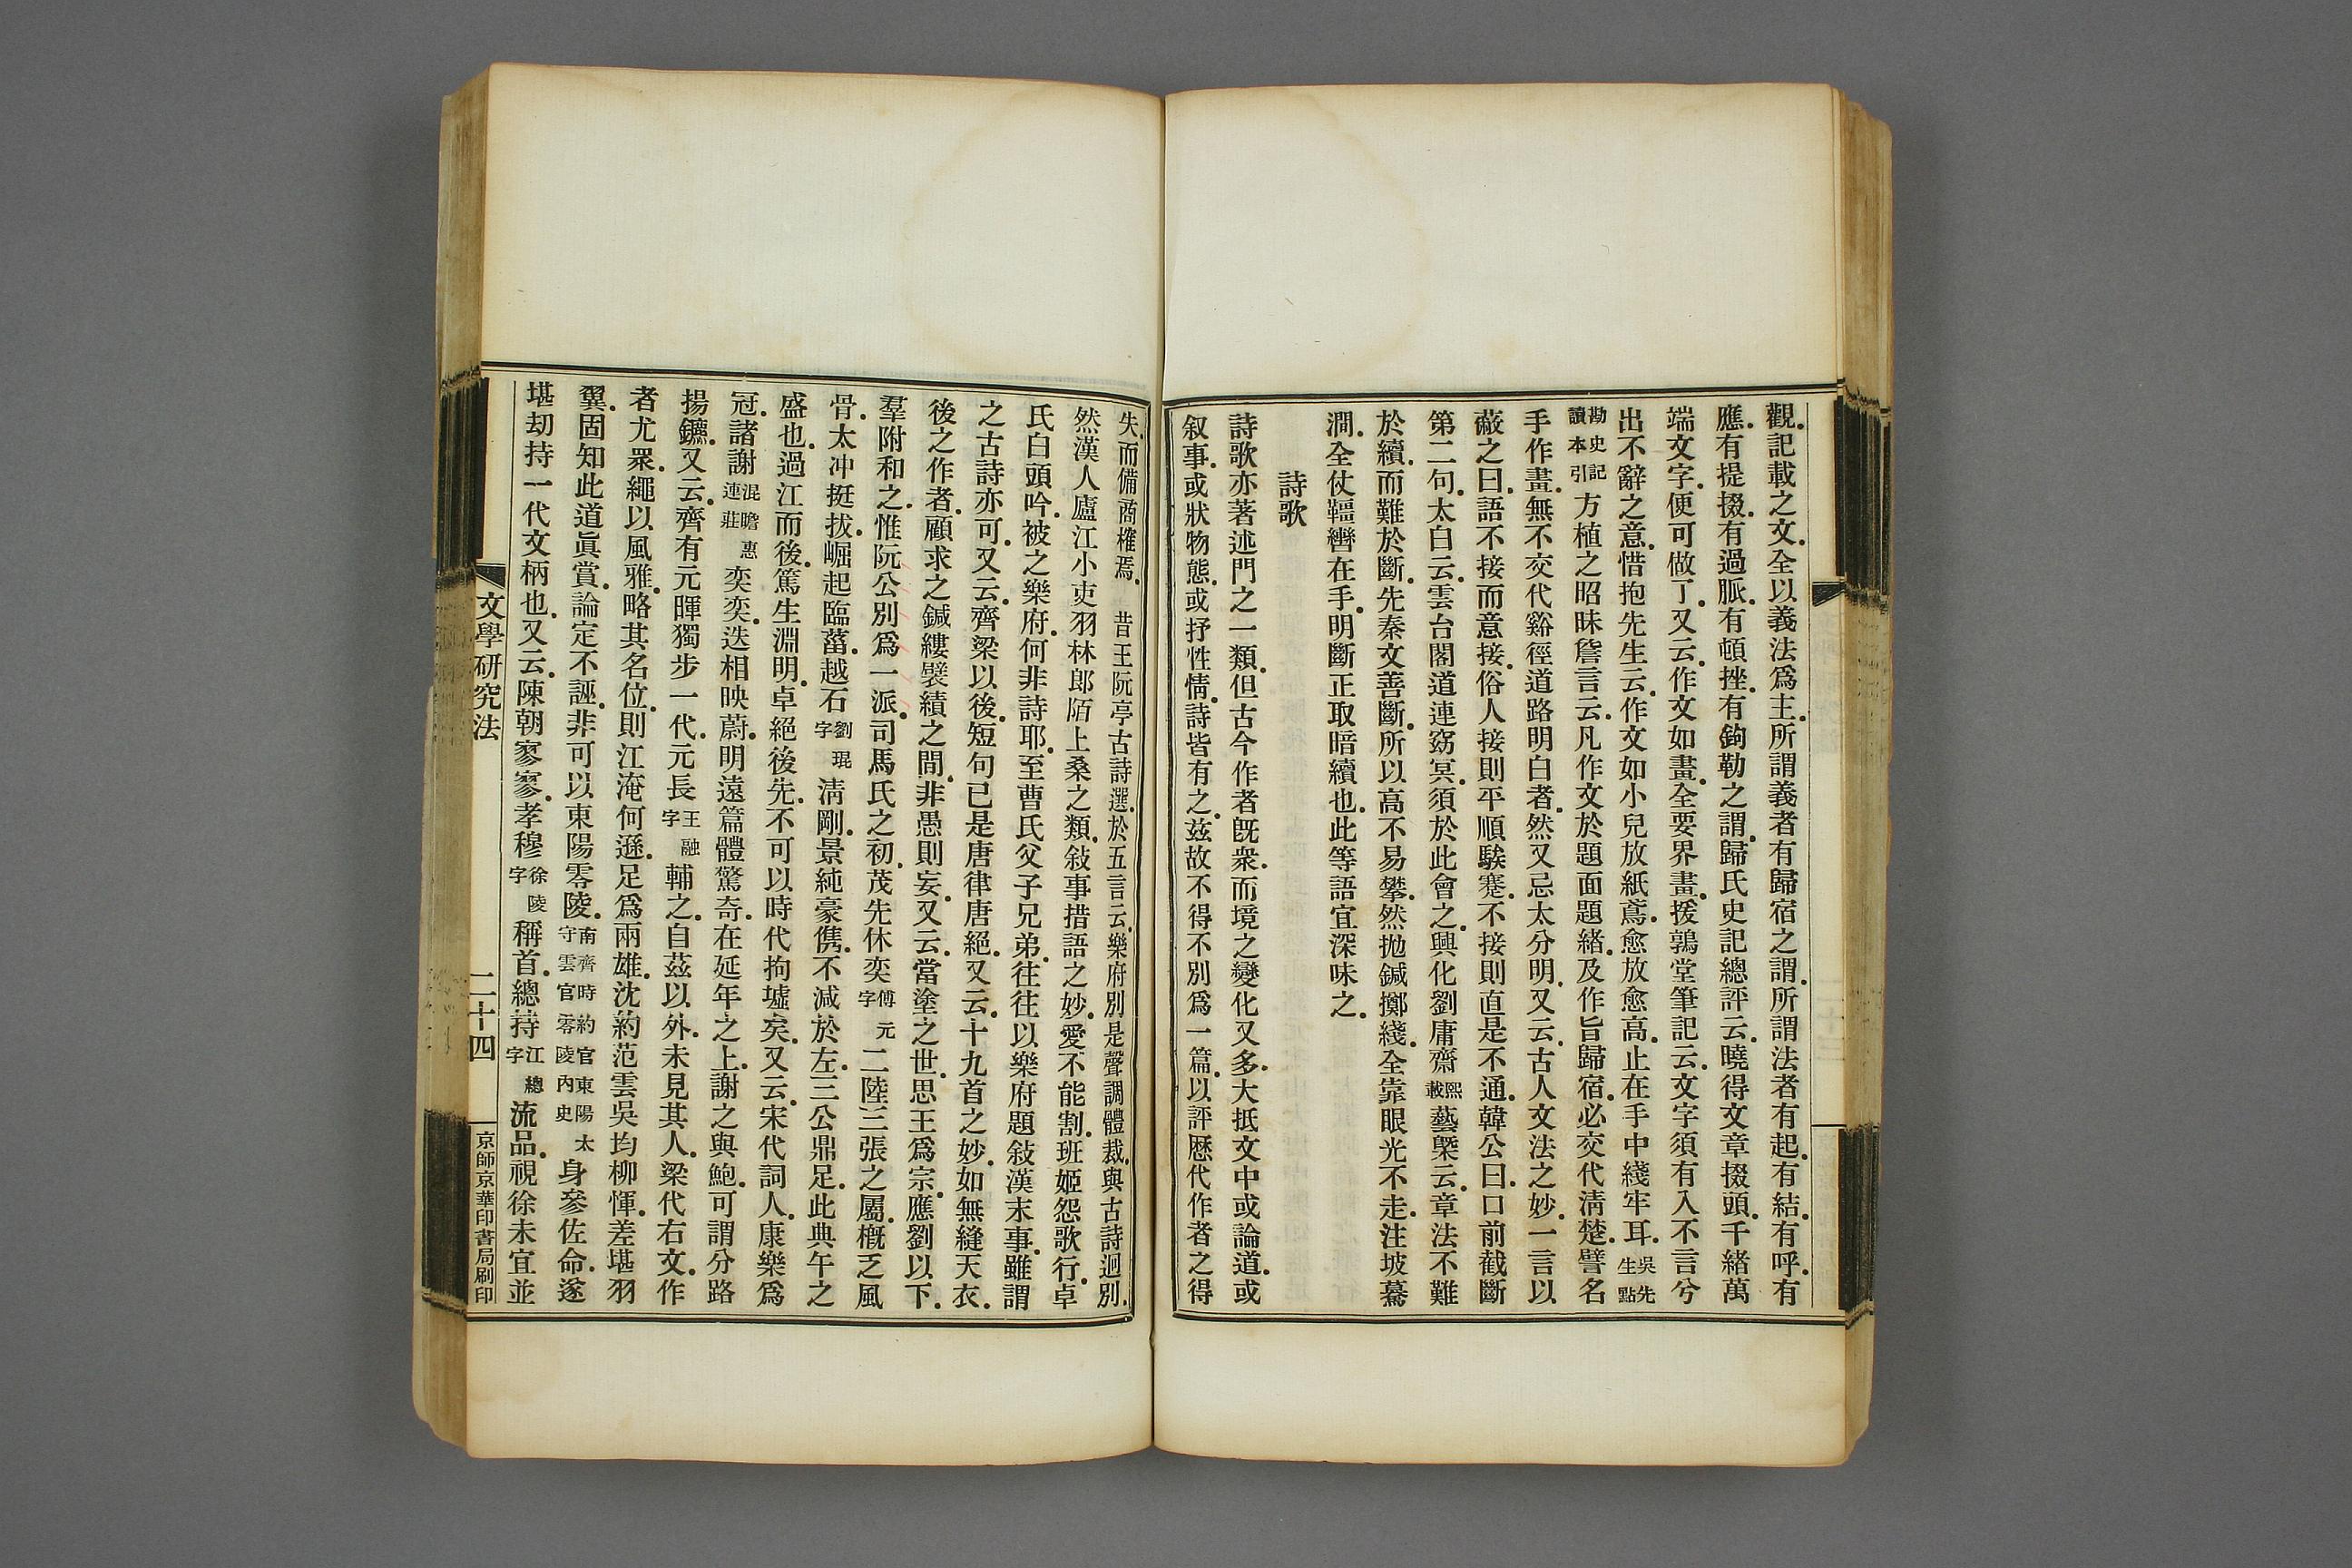 觀記載之文全以義法爲主所謂義者有歸宿之謂所謂法者有起有結有呼有
應有提掇有過脈有頓挫有鉤勒之謂歸氏史記總評云曉得文章掇頭千緒萬
端文字便可做了又云作文如畫全要界畫援鶉堂筆記云文字須有入不言兮
出不辭之意惜抱先生云作文如小兒放紙鳶愈放愈高止在手中綫牢耳吳先生點
勘史記讀本引方植之昭昧詹言云凡作文於題面題緒及作旨歸宿必交代淸楚譬名
手作畫無不交代谿徑道路明白者然又忌太分明又云古人文法之妙一言以
蔽之曰語不接而意接俗人接則平順騃蹇不接則直是不通韓公曰口前截斷
第二句太白云雲台閣道連窈冥須於此會之興化劉庸齋熙載藝槩云章法不難
於續而難於斷先秦文善斷所以高不易攀然拋鍼擲綫全靠眼光不走注坡驀
澗全仗韁轡在手明斷正取暗續也此等語宜深味之
詩歌
詩歌亦著述門之一類但古今作者旣衆而境之變化又多大抵文中或論道或
叙事或狀物態或抒性情詩皆有之茲故不得不別爲一篇以評歷代作者之得
失而備商榷焉 昔王阮亭古詩選於五言云樂府別是聲調體裁與古詩迥別
然漢人廬江小吏羽林郎陌上桑之類敍事措語之妙愛不能割班姬怨歌行卓
氏白頭吟被之樂府何非詩耶至曹氏父子兄弟往往以樂府題敍漢末事雖謂
之古詩亦可又云齊梁以後短句已是唐律唐絕又云十九首之妙如無縫天衣
後之作者顧求之鍼縷襞績之間非愚則妄又云當塗之世思王爲宗應劉以下
羣附和之惟阮公別爲一派司馬氏之初茂先休奕傅元字二陸三張之屬概乏風
骨太冲挺拔崛起臨菑越石劉琨字淸剛景純豪儁不減於左三公鼎足此典午之
盛也過江而後篤生淵明卓絕後先不可以時代拘墟矣又云宋代詞人康樂爲
冠諸謝混瞻惠連莊奕奕迭相映蔚明遠篇體驚奇在延年之上謝之與鮑可謂分路
揚鑣又云齊有元暉獨步一代元長王融字輔之自茲以外未見其人梁代右文作
者尤眾繩以風雅略其名位則江淹何遜足爲兩雄沈約范雲吳均柳惲差堪羽
翼固知此道眞賞論定不誣非可以東陽零陵南齊時約官東陽太守雲官零陵內史身參佐命遂
堪劫持一代文柄也又云陳朝寥寥孝穆徐陵字稱首總持江總字流品視徐未宜並
文學硏究法
二十四
京師京華印書局刷印